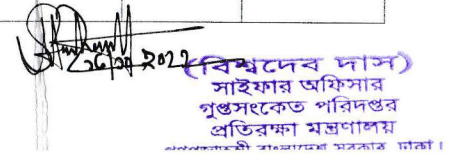 2022
(বিশ্বদেব দাস)
সাইফার অফিসার
গুপ্তসংকেত পরিদপ্তর
প্রতিরক্ষা মন্ত্রণালয়
গণপ্রজাতন্ত্রী বাংলাদেশ সরকার, ঢাকা।